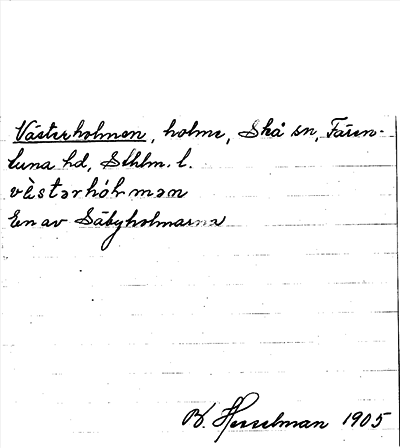 Västerholmen, holme, Skå sn, Fären-
tuna hd, Sthlm. l.
västərhól̥mən
En av Säbyholmarna
B. Hesselman 1905